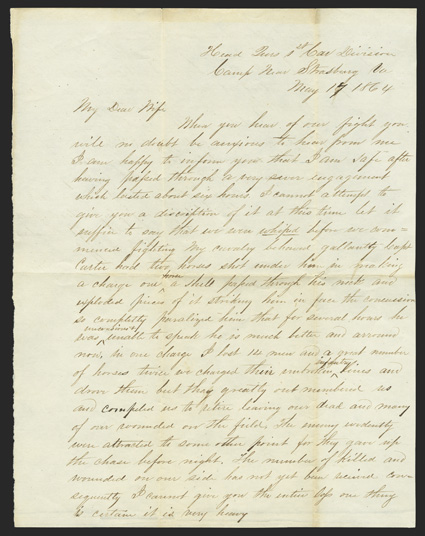 Head Qurs 1st Cav Division
Camp Near Strasburg Va
May 17 1864
My Dear Wife
When you hear of our fight you
will no doubt be anxious to hear from me
I am happy to inform you that I am safe after
having passed through a very severe engagement
which lasted about six hours. I cannot attempt to
give you a discription of it at this time let it
suffice to say that we were whiped before we com=
menced fighting My cavalry behaved gallantly Capt
Carter had two horses shot under him in making
a charge one a shell passed through his neck and
exploded pieces of it striking him in face the concussion
so completly paralized him that for several hours he
was unable to speak he is much better and around
now, in one charge I lost men and a great number
of horses twice we charged their infantry lines and
drove them but they greatly out numbered us
and compeled us to retire leaving our dead and many
of our wounded on the field. The enemy evidently
were attracted to some other point for they gave up
the chase before night. The number of killed and
wounded on our side has not yet been recieved con=
sequently I cannot give you the entire loss one thing
is certain it is very heavy